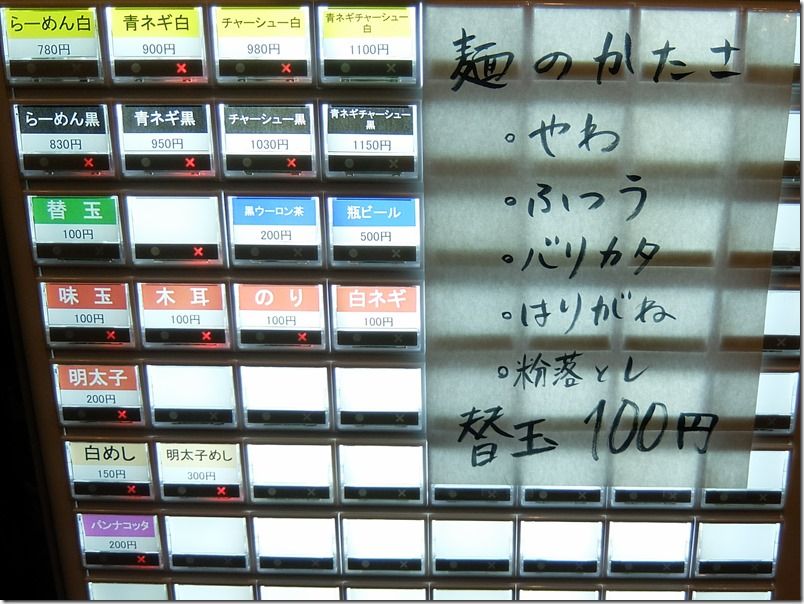 らーめん白
780円
青ネギ白
900円
チャーシュー白
980円
青ネギチャーシュー
白
1100円
らーめん黒
830円
青ネギ黒
950円
チャーシュー黒
1030円
青ネギチャーシュー
黒
1150円
替玉
100円
黒ウーロン茶
200円
瓶ビール
500円
味玉
100円
木耳
100円
のり
100円
白ネギ
100円
明太子
200円
白めし
150円
明太子めし
300円
パンナコッタ
200円
麺のかたさ
。やわ
。ふつう
。バリカタ
。はりがね
。粉落とし
替玉 100円